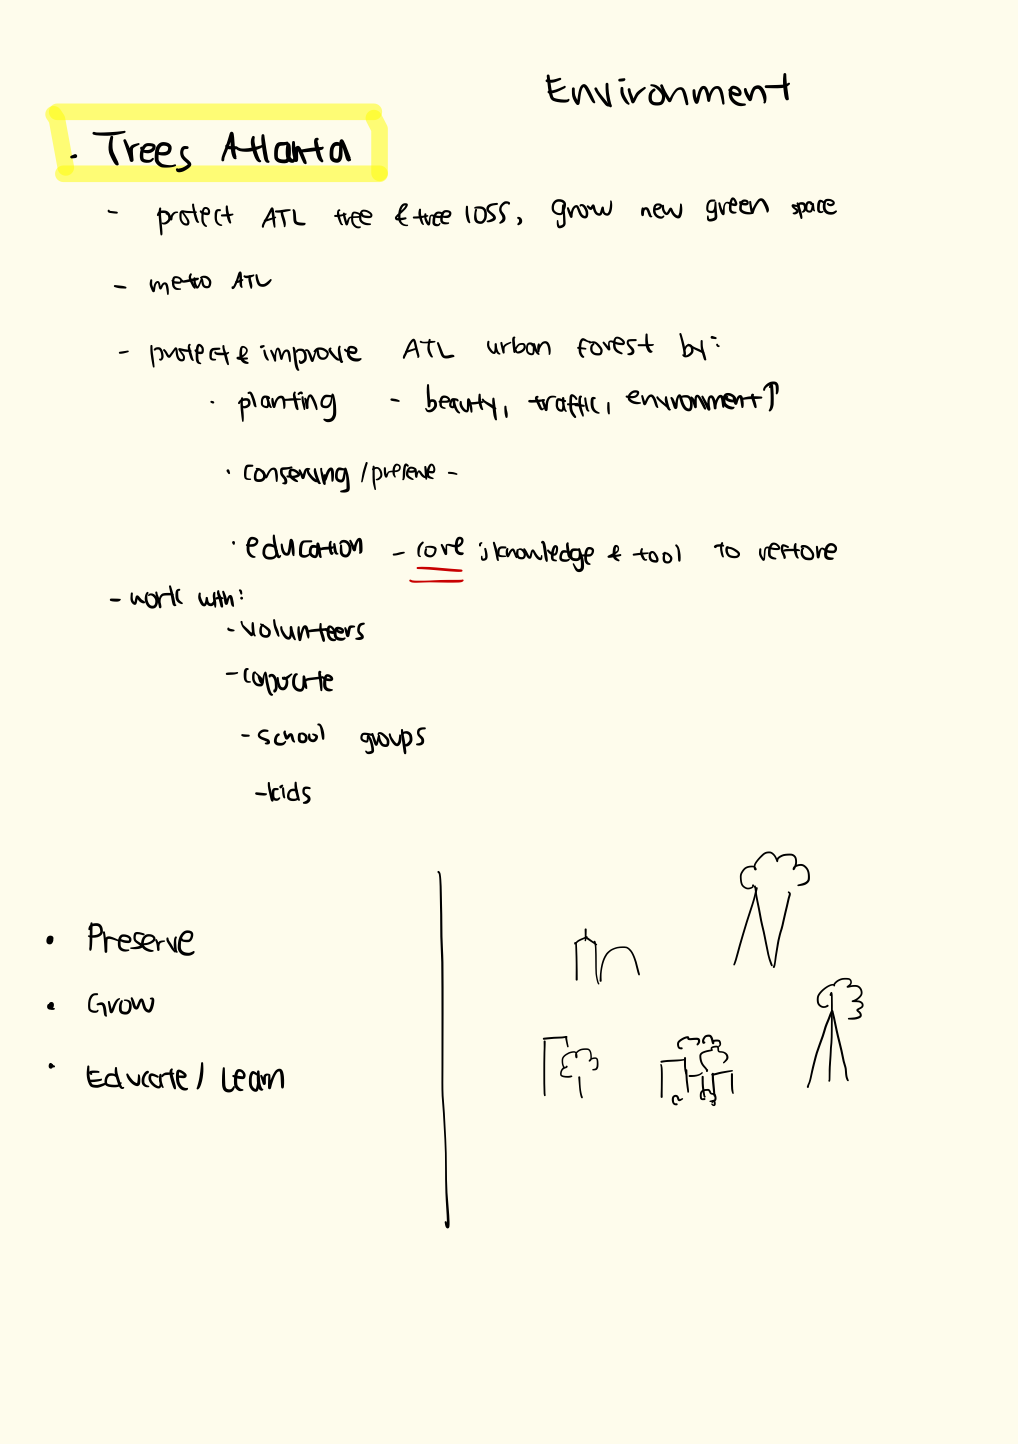 Environment
· Trees Atlanta
- protect ATL tree & tree loss, grow new green space
- metro ATL
- protect & improve ATL urban forest by:
· planting - beauty, traffic, environment↑
· conserving / preserve -
· education - core : knowledge & tool to restore
- work with:
- volunteers
- coporate
- school groups
- kids
• Preserve
• Grow
• Educate / Learn